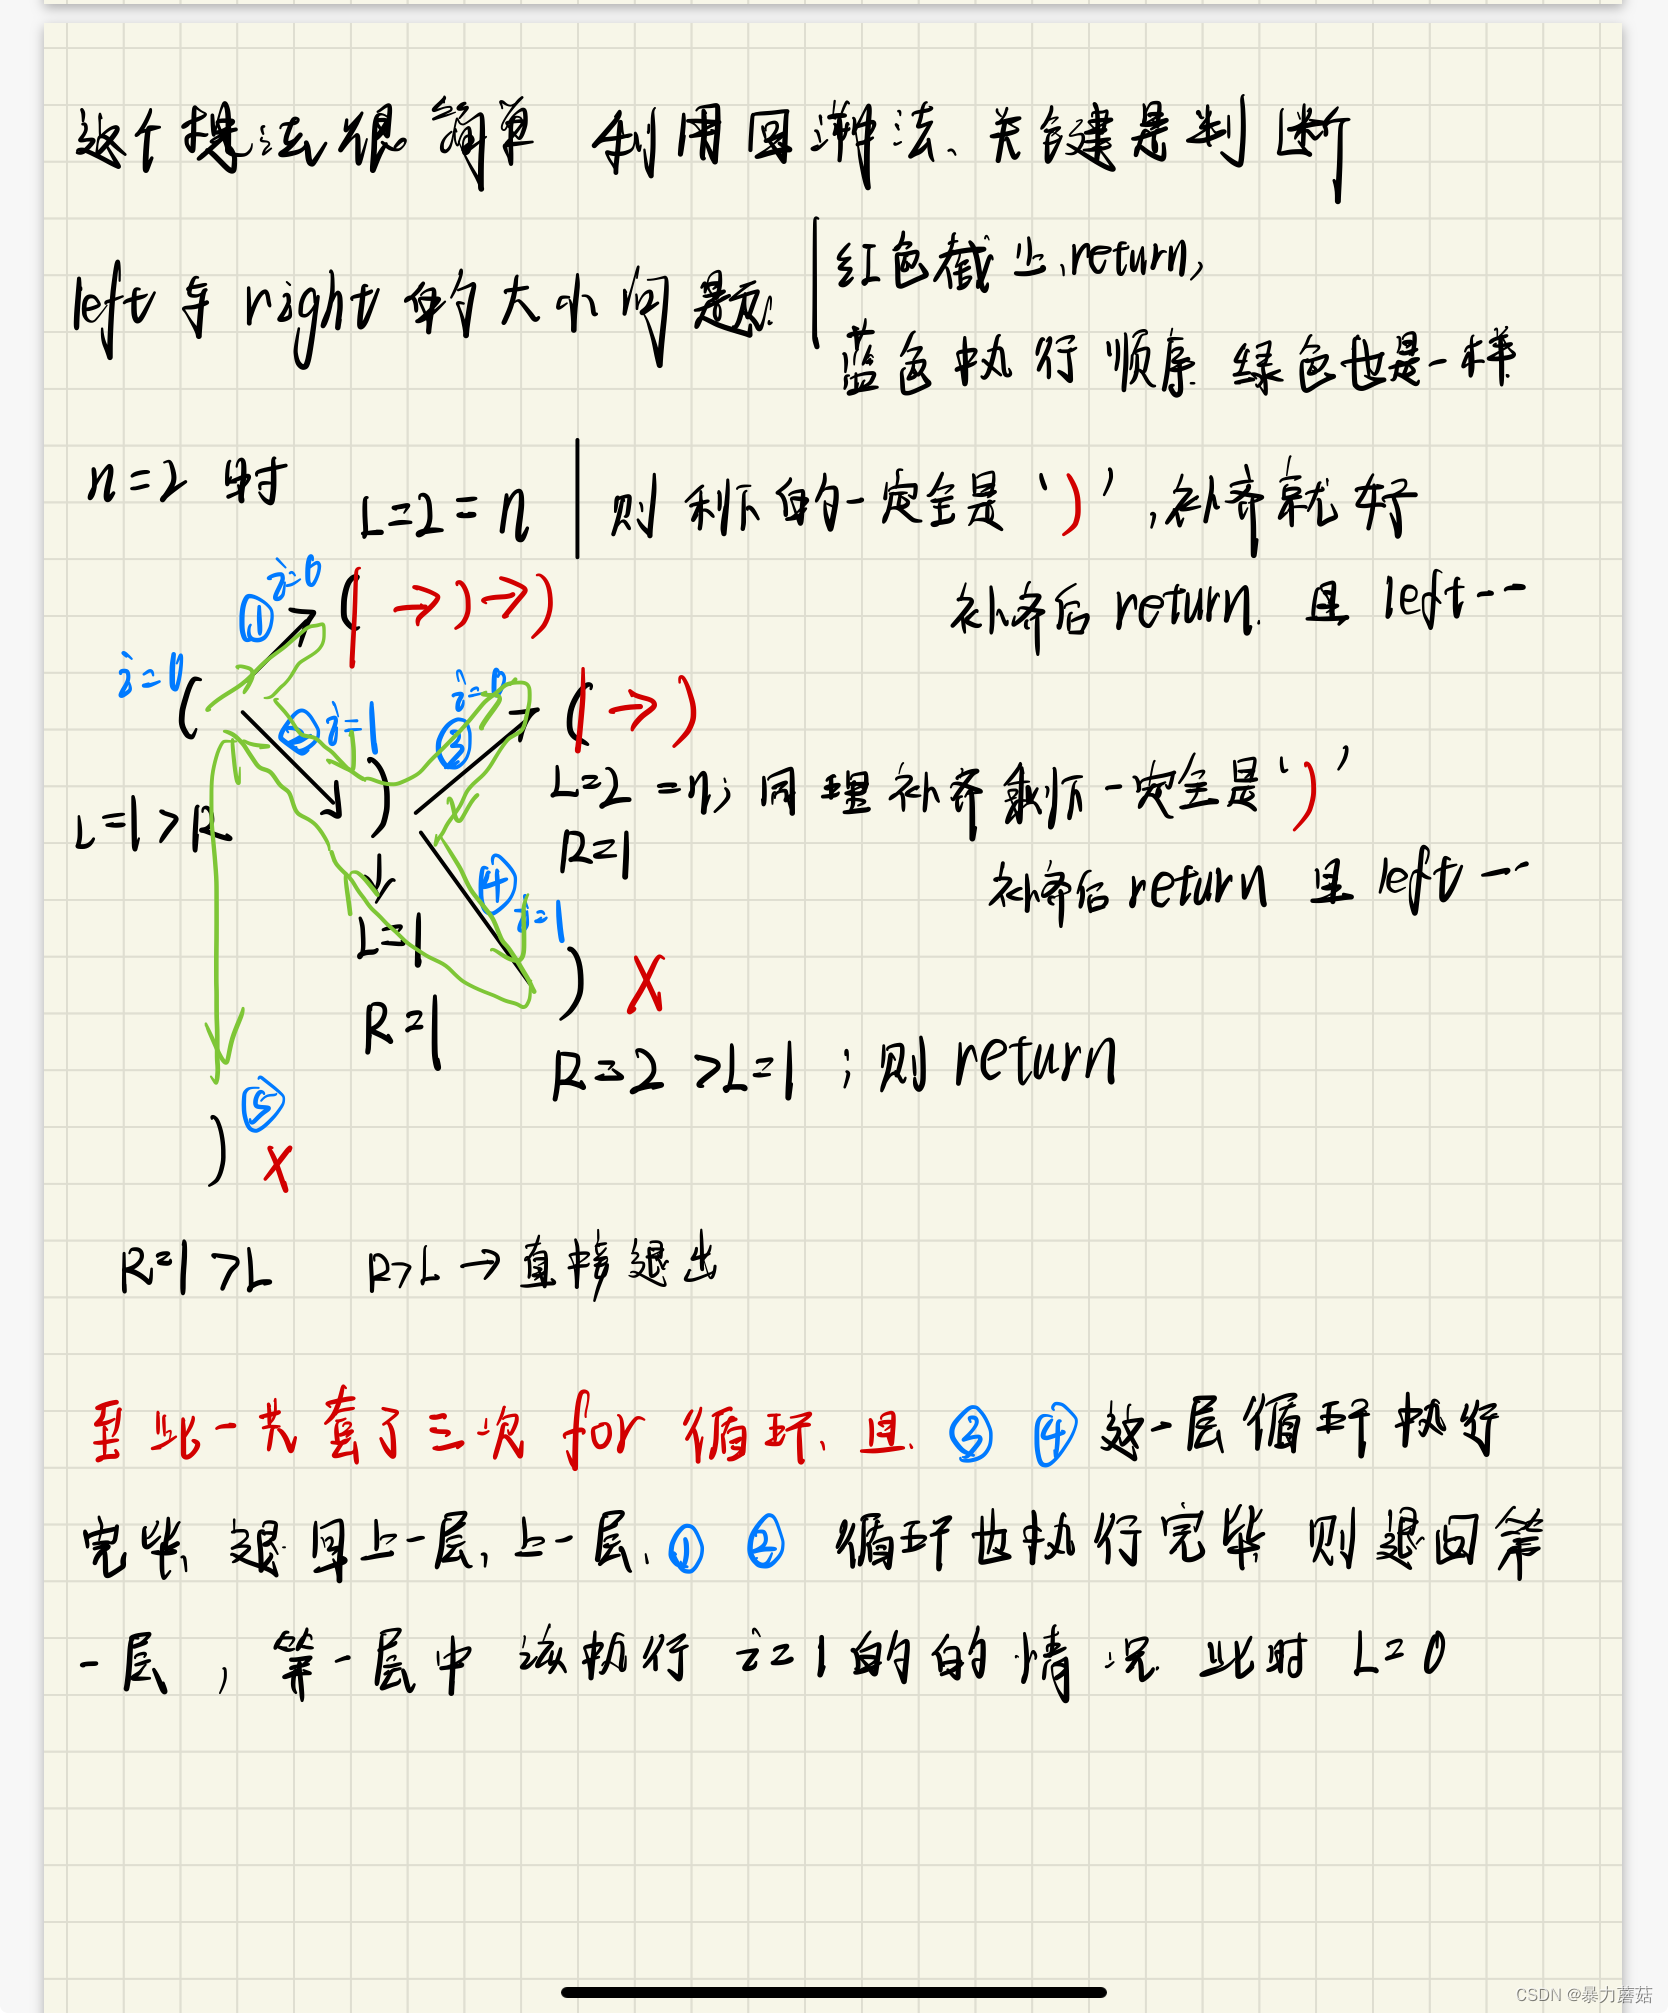 这个想法很简单 利用回溯法、关键是判断
left 与 right 的大小问题.
红色截止、return,
蓝色执行顺序. 绿色也是一样
n=2 时
L=2=n
则剩下的一定全是 ')' ,补齐就好
补齐后 return. 且 left--
① i=0 ( →)→)
i=0 (
② i=1 )
③ i=0 ( →)
L=1>R
L=2=n; 同理补齐剩下一定全是 ')'
R=1
补齐后 return 且 left--
④ i=1
L=1
R=1
) X
R=2 >L=1 ; 则 return
⑤
) X
R=1>L R>L→直接退出
至此一共套了三次 for 循环、且. ③ ④ 这一层循环执行
完毕, 退回上一层, 上一层、① ② 循环也执行完毕 则退回第
一层 , 第一层中该执行 i=1的的情况. 此时 L=0
CSDN @暴力蘑菇